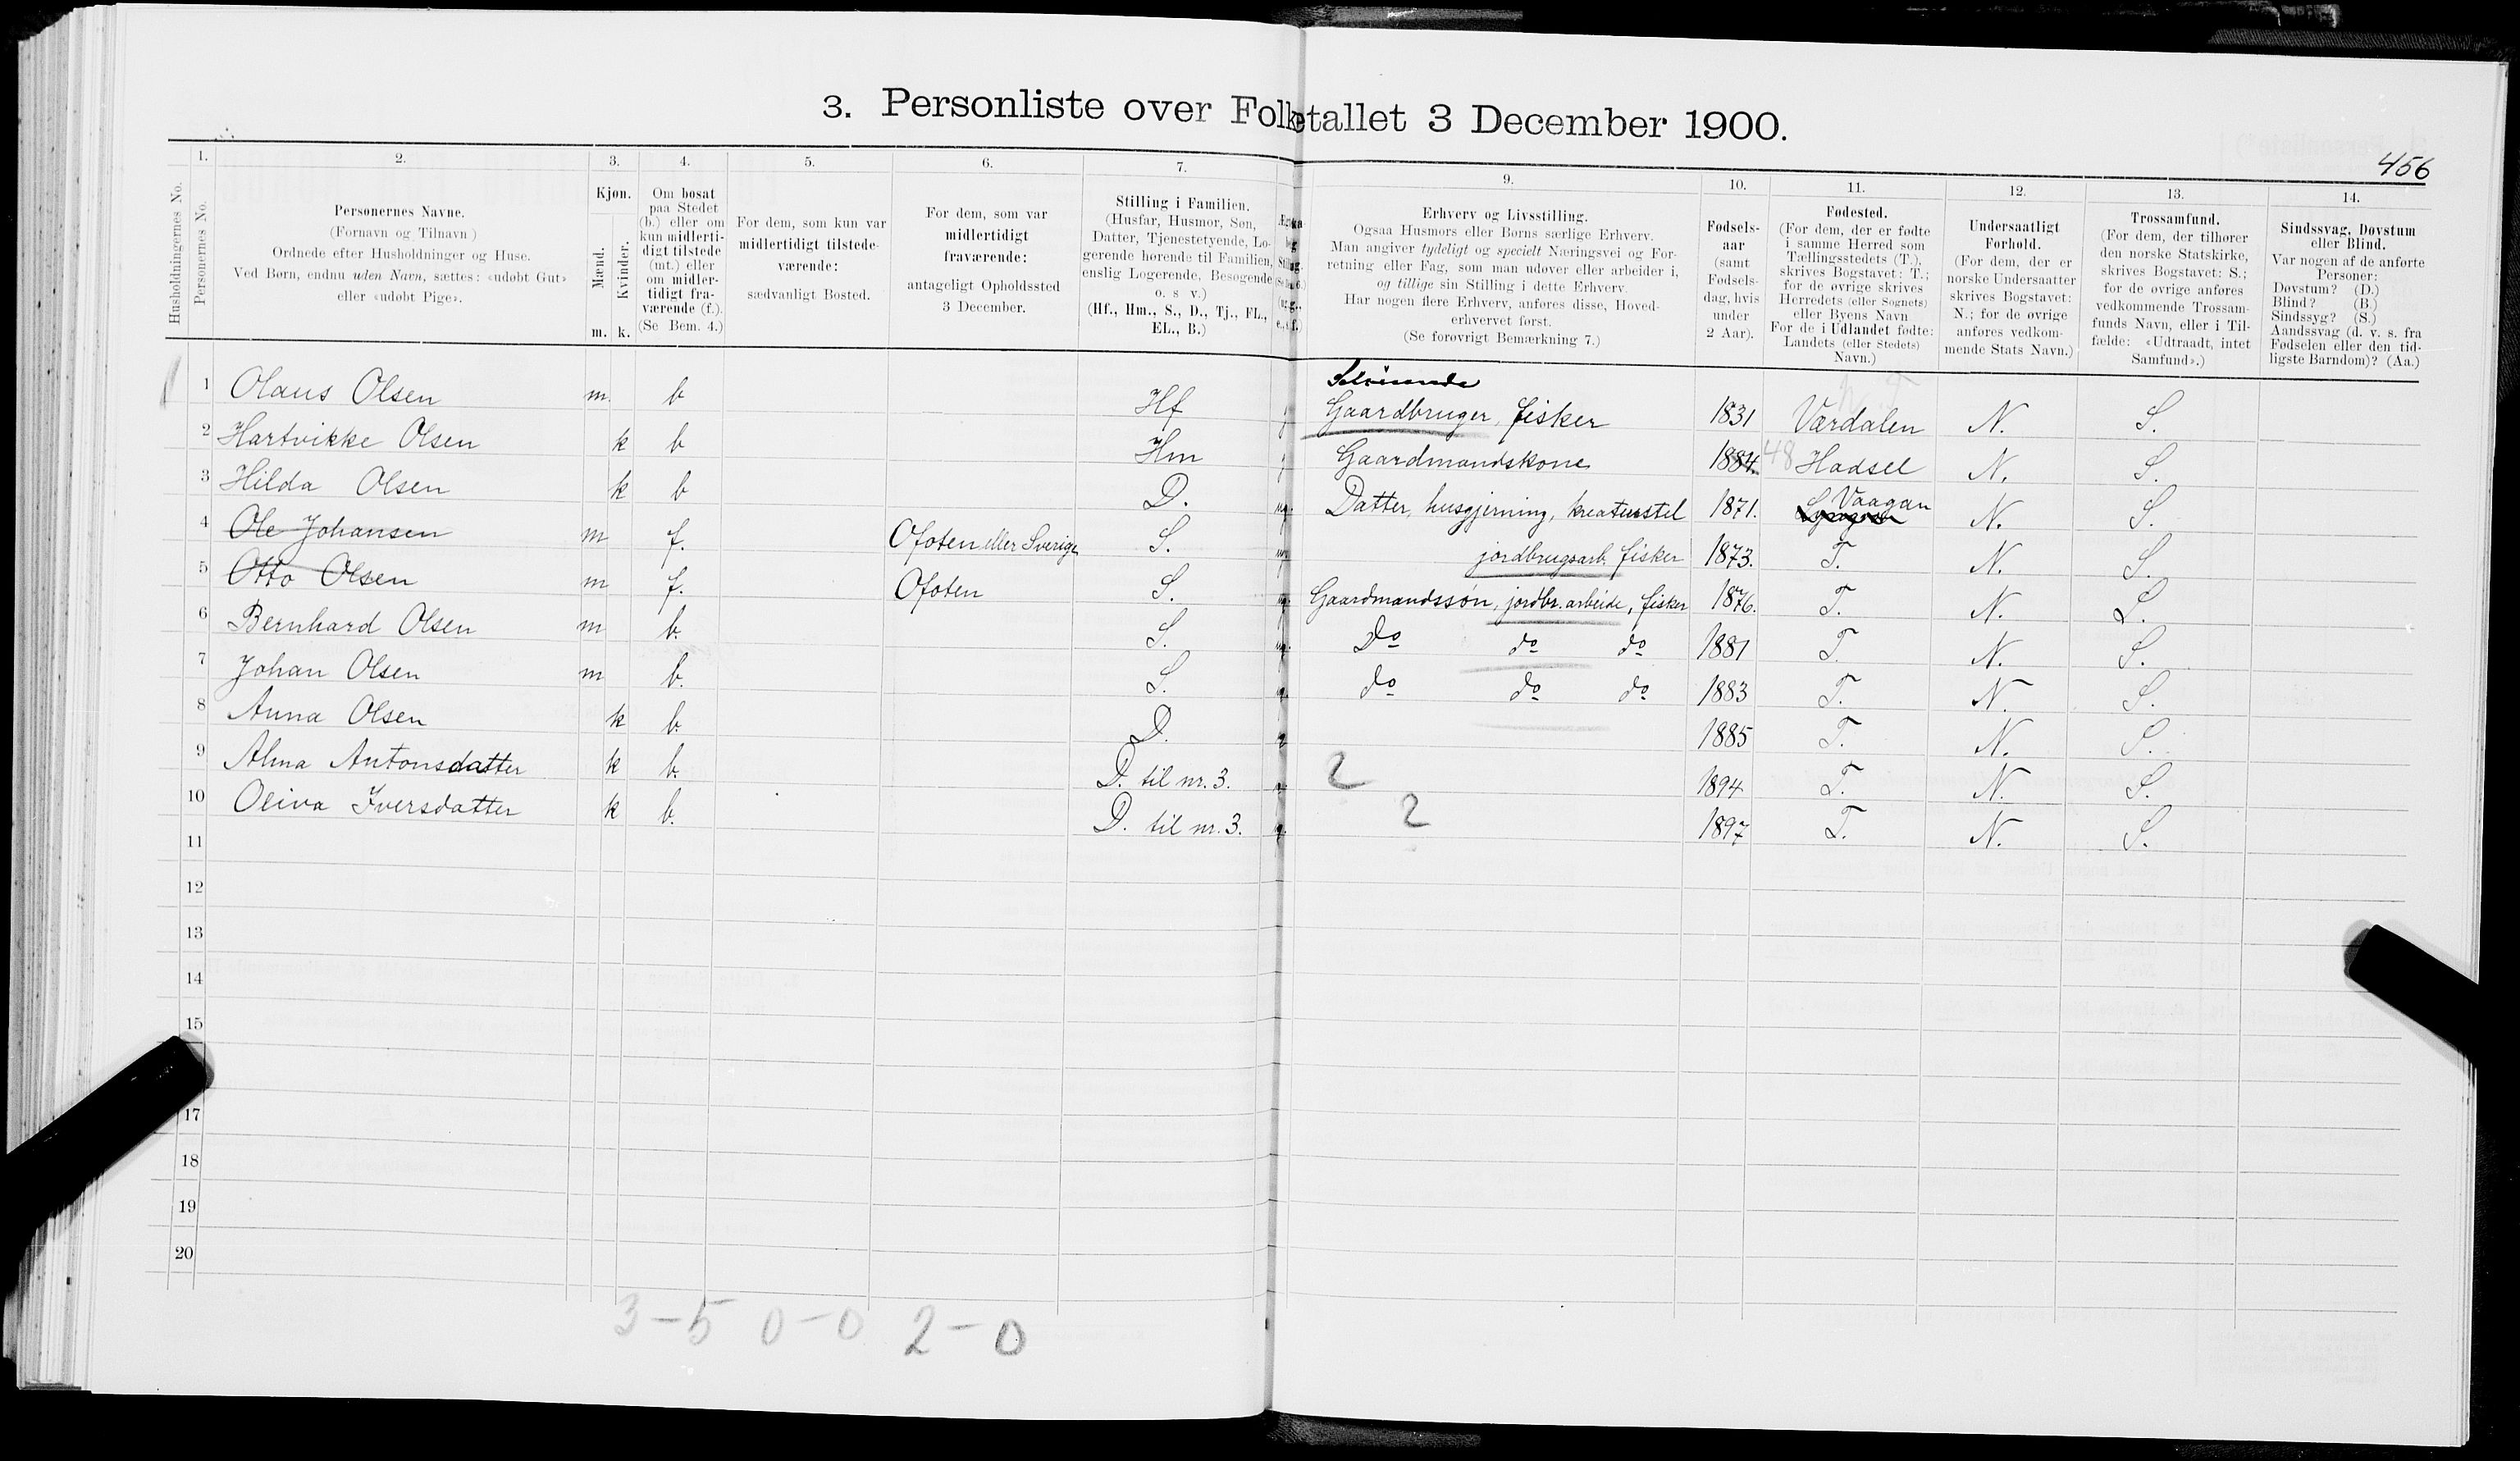 3. Personliste over Folketallet 3 December 1900.
456
Husholdningernes No.
1.
Personernes No.
2.
Personernes Navne.
(Fornavn og Tilnavn)
Ordnede efter Husholdninger og Huse.
Ved Børn, endnu uden Navn, sættes: «udøbt Gut»
eller «udøbt Pige».
3.
Kjøn.
Mænd.
Kvinder.
m. k.
4.
Om bosat
paa Stedet
(b.) eller om
kun midlerti-
digt tilstede
(mt.) eller
om midler-
tidigt fra-
værende (f.).
(Se Bem. 4.)
5.
For dem, som kun var
midlertidigt tilstede-
værende:
sædvanligt Bosted.
6.
For dem, som var
midlertidigt
fraværende:
antageligt Opholdssted
3 December.
7.
Stilling i Familien.
(Husfar, Husmor, Søn,
Datter, Tjenestetyende, Lo-
gerende hørende til Familien,
enslig Logerende, Besøgende
o. s v.)
(Hf., Hm., S., D., Tj., FL.,
EL., B.)
9.
Erhverv og Livsstilling.
Ogsaa Husmors eller Børns særlige Erhverv.
Man angiver tydeligt og specielt Næringsvei og For-
retning eller Fag, som man udøver eller arbeider i,
og tillige sin Stilling i dette Erhverv.
Har nogen flere Erhverv, anføres disse, Hoved-
erhvervet først.
(Se forøvrigt Bemærkning 7.)
10.
Fødsels-
aar
(samt
Fødsels-
dag, hvis
under
2 Aar).
11.
Fødested.
(For dem, der er fødte
i samme Herred som
Tællingsstedets (T.),
skrives Bogstavet: T.;
for de øvrige skrives
Herredets (eller Sognets)
eller Byens Navn
For de i Udlandet fødte:
Landets (eller Stedets)
Navn.)
12.
Undersaatligt
Forhold.
(For dem, der er
norske Undersaatter
skrives Bogstavet:
N.; for de øvrige
anføres vedkom-
mende Stats Navn.)
13.
Trossamfund.
(For dem, der tilhører
den norske Statskirke,
skrives Bogstavet: S.;
for de øvrige anføres
vedkommende Trossam-
funds Navn, eller i Til-
fælde: «Udtraadt, intet
Samfund».)
14.
Sindssvag, Døvstum
eller Blind.
Var nogen af de anførte
Personer:
Døvstum? (D.)
Blind? (B.)
Sindssyg? (S.)
Aandssvag (d. v. s. fra
Fødselen eller den tid-
ligste Barndom)? (Aa.)
Selveiende
1 Olaus Olsen m. b Hf Gaardbruger, fisker 1831 Værdalen N. S.
2 Hartvikke Olsen k b Hm Gaardmandskone 1884. 48 Hadsel N. S.
3 Hilda Olsen k b D. ug. Datter, husgjerning, kreaturstel 1871. Vaagan N. S.
4 Ole Johansen m f. Ofoten eller Sverige S. jordbrugsarb. fisker 1873. T. N. S.
5 Otto Olsen m f. Ofoten S. Gaardmandssøn, jordbr. arbeide, fisker 1876. T. N. S.
6 Bernhard Olsen m b. S. Do do do 1881 T. N. S.
7 Johan Olsen m b. S. do do do 1883 T. N. S.
8 Anna Olsen k b. D. 1885 T. N. S.
9 Alma Antonsdatter k b. D. til nr. 3. 2 1894 T. N. S.
10 Oliva Iversdatter k b. D. til nr. 3. 2 1897 T. N. S.
11
12
13
14
15
17
18
19
20
3-5 0-0 2-0